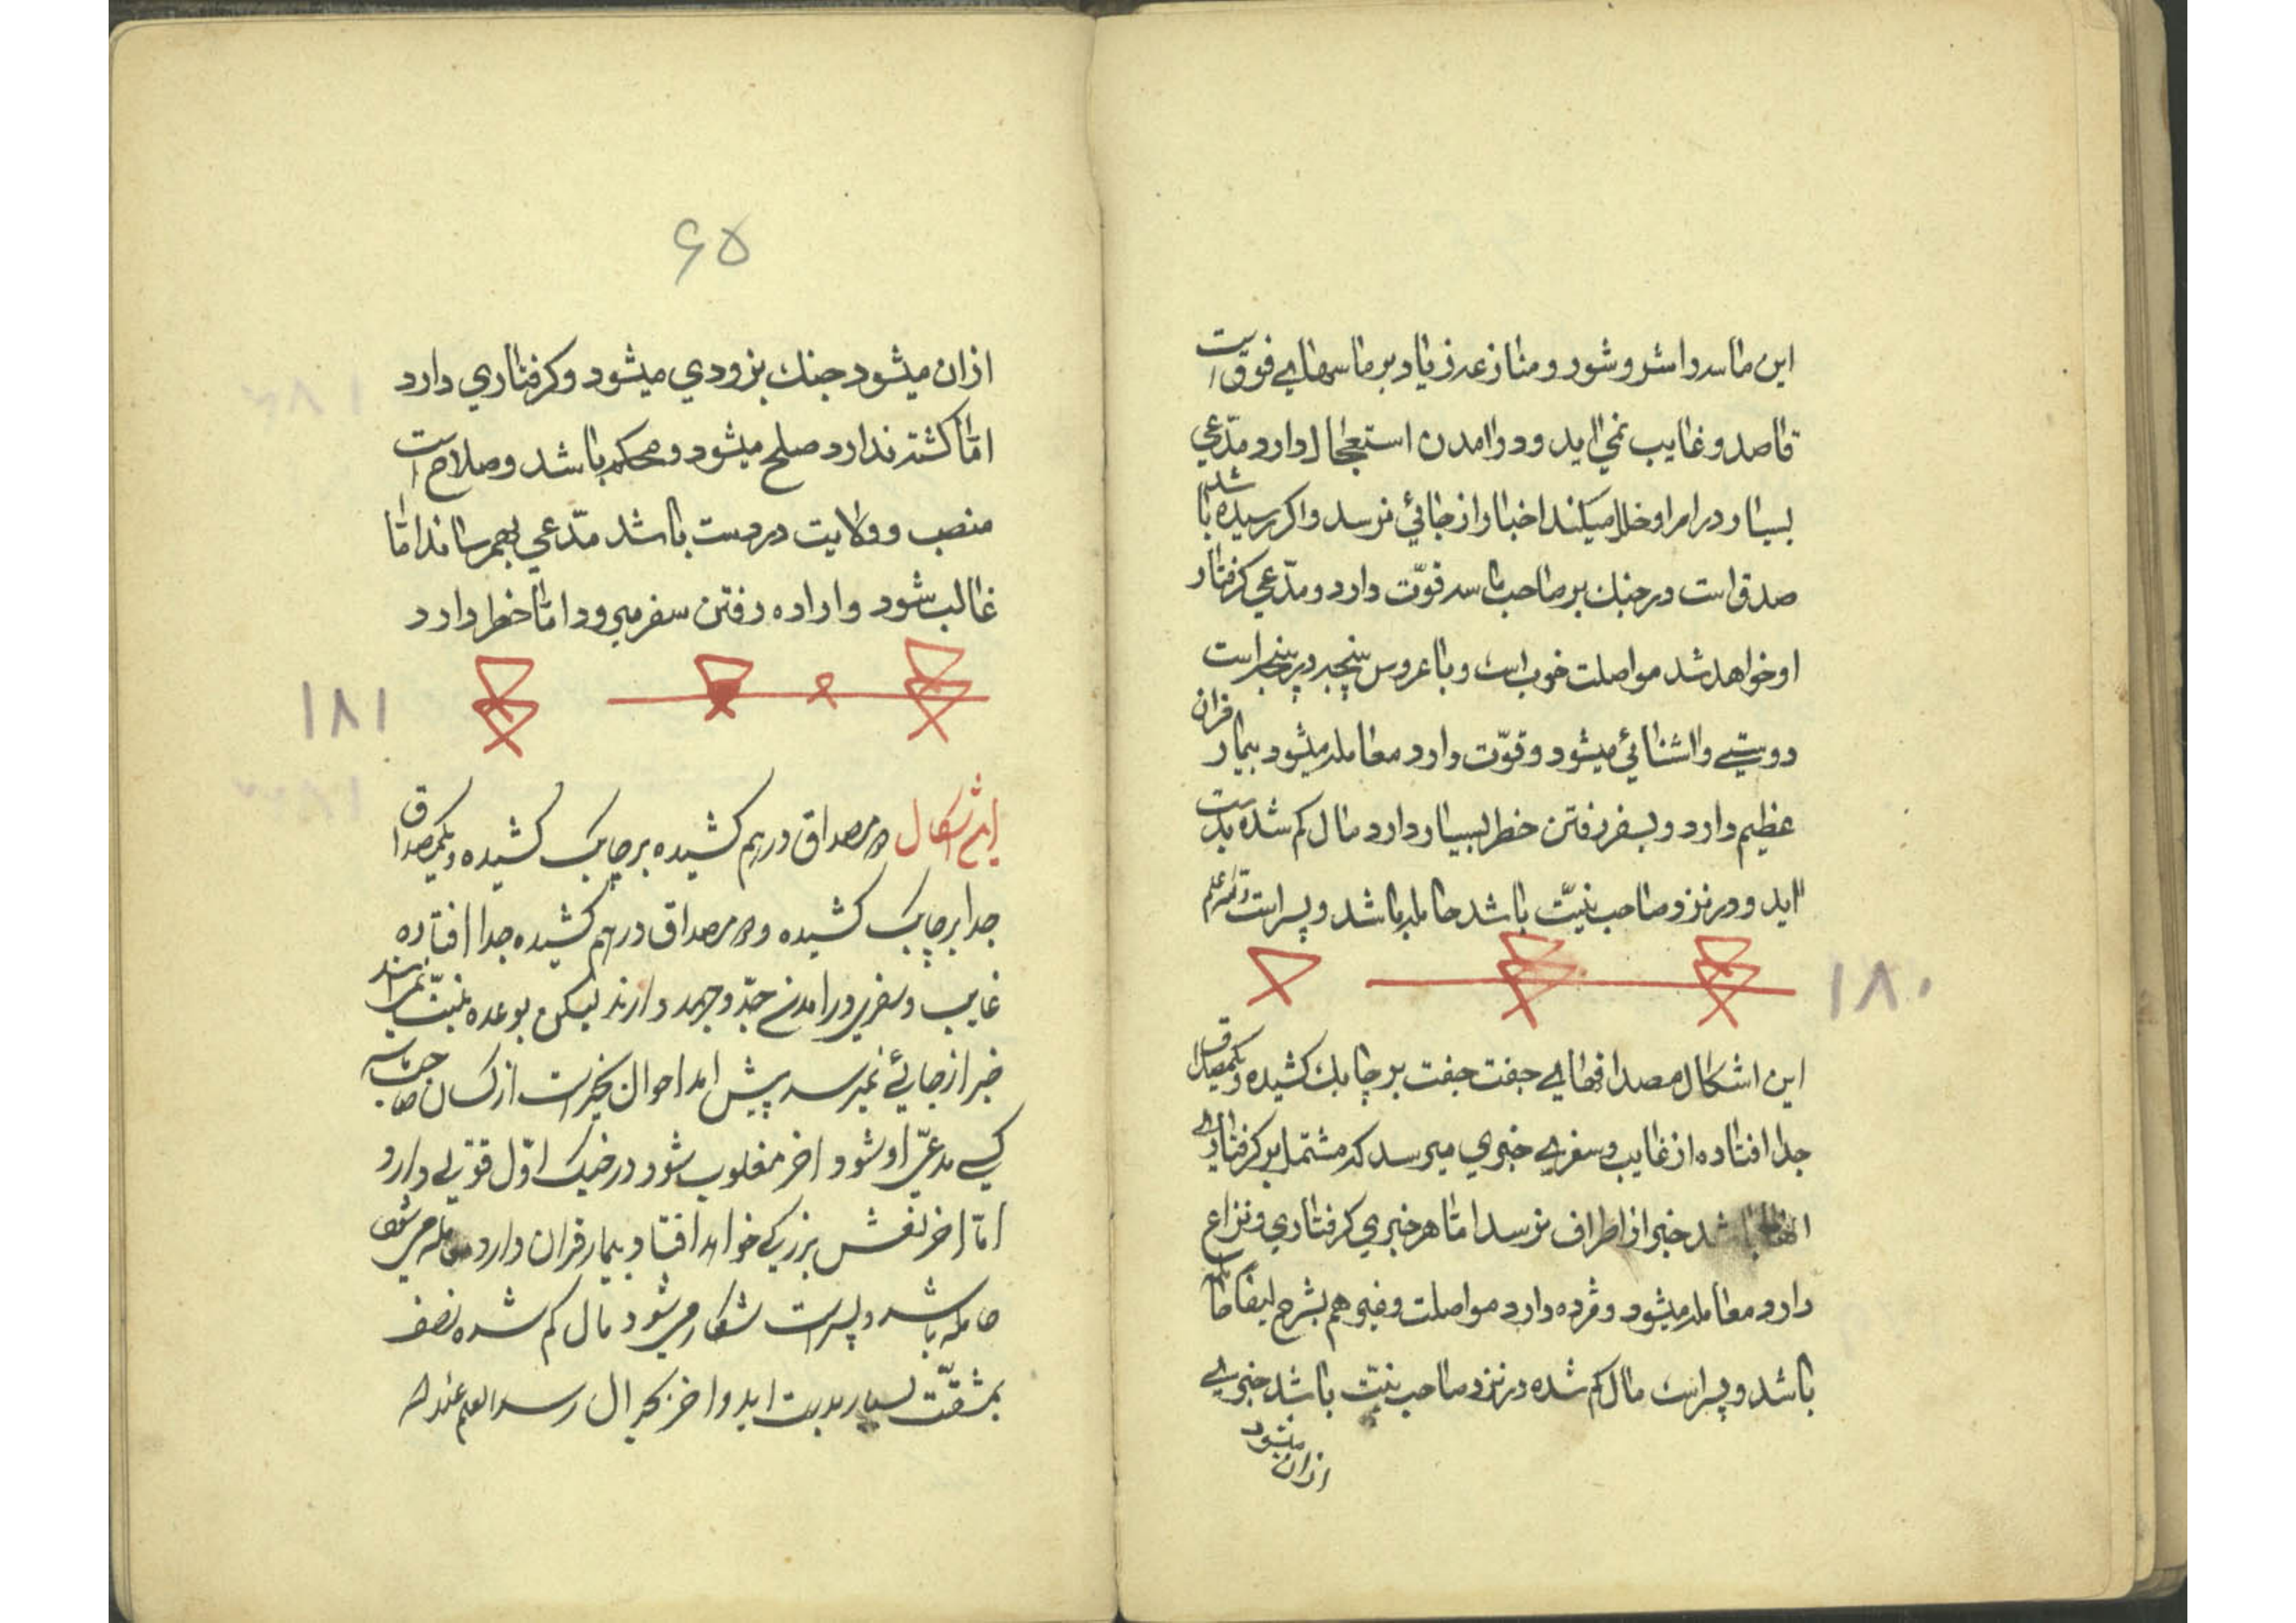 این ماسه وا مشروشود ومنازعه زیاد بر ماسهای فوق است
قاصد وغایب نمی اید ودر امدن استعجال دارد مدّعی
بسیار در امر او خلل میکند اخبار از جائی نرسد واکر رسیده باشد
صدق است در جنك بر صاحب ماسه قوّت دارد ومدّعی کرفتار
او خواهد شد مواصلت خوب است وبا عروس پنجه در پنجه است
دوستی واشنائی میشود وقوّت دارد معامله میشود بیمار قران
عظیم دارد وبسفر رفتن خطر بسیار دارد مال کم شده بدست
اید ودر نزد صاحب نیّت باشد حامله باشد وپسر است
۱۸۰
این اشکال مصداقهای جفت جفت بر چابك کشیده ویکمصداق
جدا افتاده از غایب وسفری خبری میرسد که مشتمل بر کرفتاری
باشد خبر از اطراف نرسد امّا هر خبری کرفتاری ونزاع
دارد معامله میشود ومژده دارد مواصلت وغیره هم بشرح ایضا حامله
باشد وپسر است مال کم شده در نزد صاحب نیّت باشد خبری
ازان میشود
۶۵
ازان میشود جنك بزودی میشود وکرفتاری دارد
امّا کشته ندارد صلح میشود ومحکم باشد وصلاح است
منصب وولایت در دست باشد مدّعی بهمرساند امّا
غالب شود واراده رفتن سفر میرود امّا خطر دارد
۱۸۱
این اشکال دو مصداق درهم کشیده بر چابک کشیده ویکمصداق
جدا بر چابک کشیده ودو مصداق درهم کشیده جدا افتاده
غایب وسفری در امدن جدّ وجهد دارند لیکن بوعده نیّت نمیرسند
خبر از جائے نمیرسد پیش امد احوال بخیر است از کسان صاحب ماسه
کسے مدعیّ او شود اخر مغلوب شود در جنک اوّل قوّتے دارد
امّا اخر نقش بزرکے خواهد افتاد بیمار قران دارد معامله میشود
حامله باشد وپسر است شکار میشود مال کم شده نصف
بمشقّت بسیار بدست اید واخر بخیر ال رسد العلم عند الله